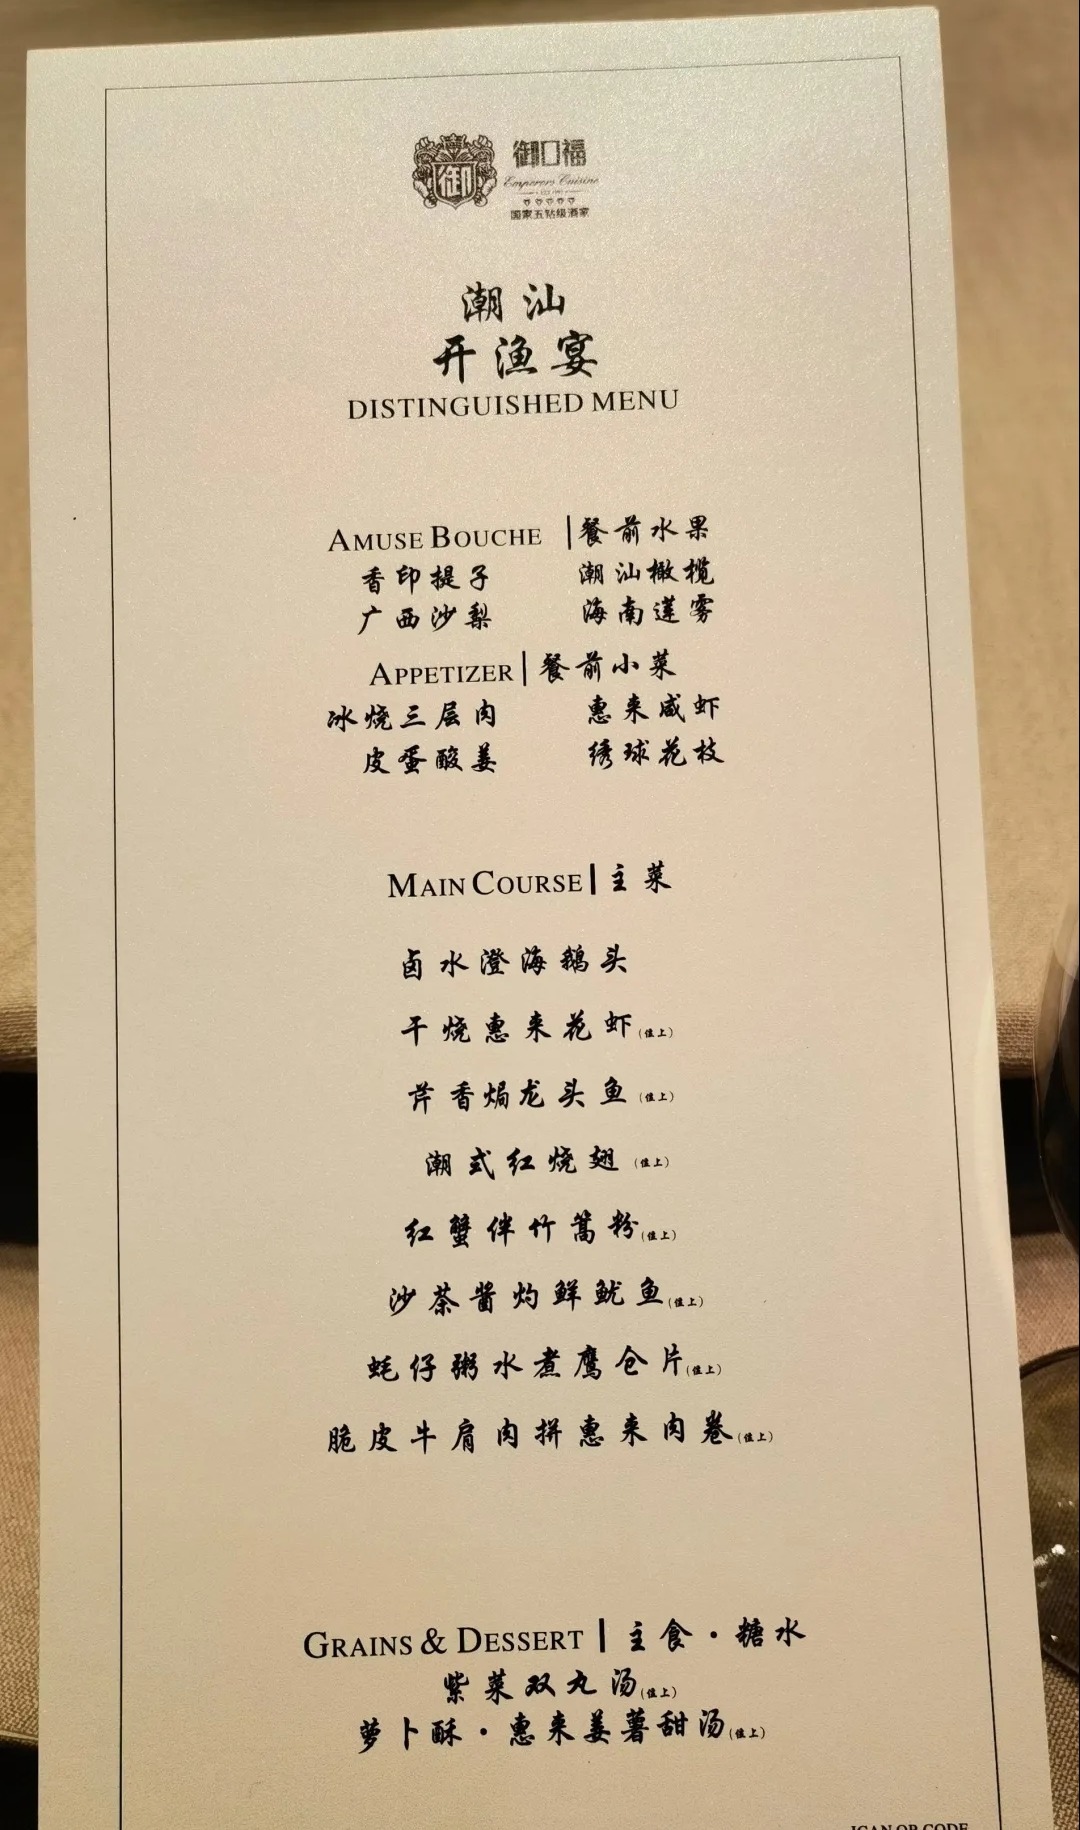 御
御口福
Emperors Cuisine
国家五钻级酒家
潮汕
开渔宴
DISTINGUISHED MENU
AMUSE BOUCHE |餐前水果
香印提子 潮汕橄榄
广西沙梨 海南莲雾
APPETIZER|餐前小菜
冰烧三层肉 惠来咸虾
皮蛋酸姜 绣球花枝
MAIN COURSE|主菜
卤水澄海鹅头
干烧惠来花虾(位上)
芹香焗龙头鱼(位上)
潮式红烧翅(位上)
红蟹伴竹篙粉(位上)
沙茶酱灼鲜鱿鱼(位上)
蚝仔粥水煮鹰仓片(位上)
脆皮牛肩肉拼惠来肉卷(位上)
GRAINS & DESSERT|主食·糖水
紫菜双丸汤(位上)
萝卜酥·惠来姜薯甜汤(位上)